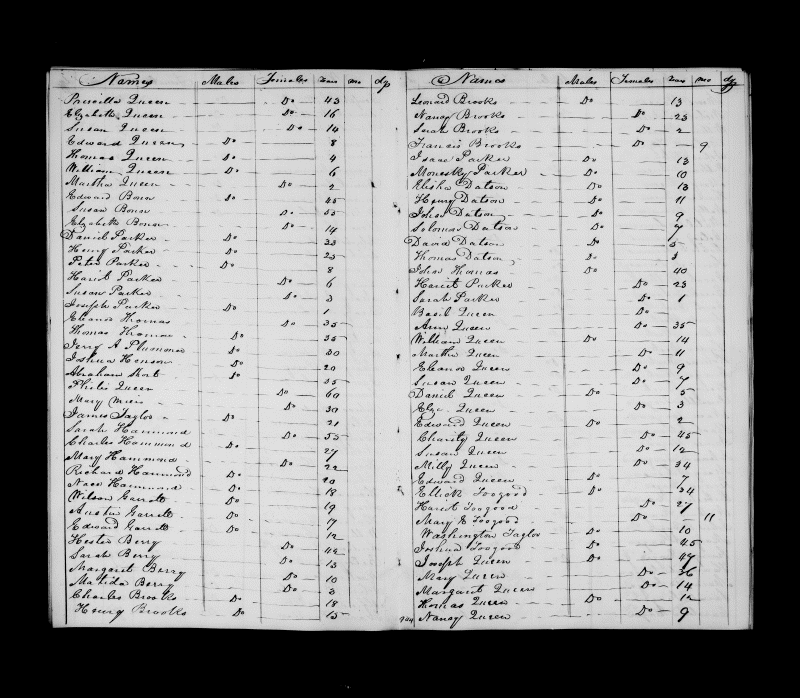 Names Males Females Years mo dys
Priscilla Queen Do 43
Elizabeth Queen Do 16
Susan Queen Do 14
Edward Queen Do 8
Thomas Queen Do 4
William Queen Do 6
Martha Queen Do 2
Edward Bown Do 45
Susan Bown Do 55
Elizabeth Bown Do 14
Daniel Parker Do 23
Henry Parker Do 25
Peter Parker Do 8
Hariot Parker Do 6
Susan Parker Do 3
Joseph Parker Do 1
Eleanor Thomas Do 35
Thomas Thomas Do 35
Jerry A Plummer Do 30
Joshua Henson Do 20
Abraham Do 55
Philis Queen Do 60
Mary Do 30
James Taylor Do 21
Sarah Hammond Do 55
Charles Hammond Do 27
Mary Hammond Do 22
Richard Hammond Do 20
Nace Hammond Do 18
Wilson Garrett Do 19
Austin Garrett Do 17
Edward Garrett Do 12
Hester Berry Do 42
Sarah Berry Do 13
Margaret Berry Do 10
Matilda Berry Do 3
Charles Brooks Do 18
Henry Brooks Do 15
Names Males Females Years mo dys
Leonard Brooks Do 13
Nancy Brooks Do 23
Sarah Brooks Do 2
Francis Brooks Do 9
Isaac Parker Do 13
Parker Do 10
Elisha Datson Do 13
Henry Datson Do 11
John Datson Do 9
Solomon Datson Do 7
David Datson Do 5
Thomas Datson Do 3
John Thomas Do 40
Hariet Parker Do 23
Sarah Parker Do 1
Basil Queen Do
Ann Queen Do 35
William Queen Do 14
Martha Queen Do 11
Eleanor Queen Do 9
Susan Queen Do 7
Daniel Queen Do 5
Eliza Queen Do 3
Edward Queen Do 2
Charity Queen Do 45
Susan Queen Do 12
Milly Queen Do 34
Edward Queen Do 7
Elliott Toogood Do 34
Hariot Toogood Do 27
Mary E Toogood Do 11
Washington Taylor Do 10
Joshua Toogood Do 45
Joseph Queen Do 47
Mary Queen Do 36
Margaret Queen Do 14
Thomas Queen Do 12
Nancy Queen Do 9